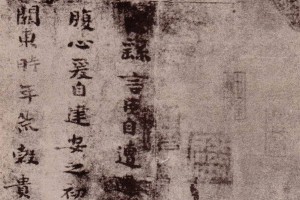 繇言臣自遭
腹心爰自建安之初
關東時年荒穀貴